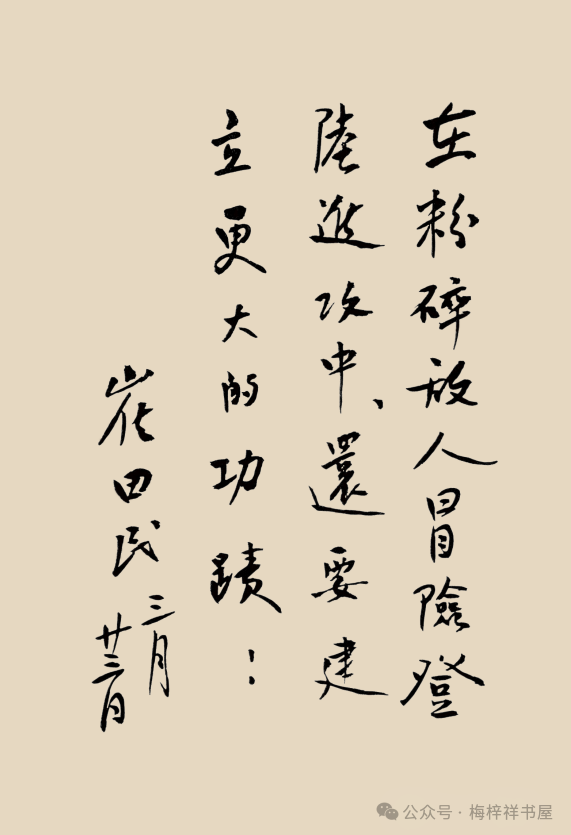 在粉碎敌人冒險登
陸進攻中、還要建
立更大的功蹟！
崔田民
三月
廿三日
公众号·梅梓祥书屋